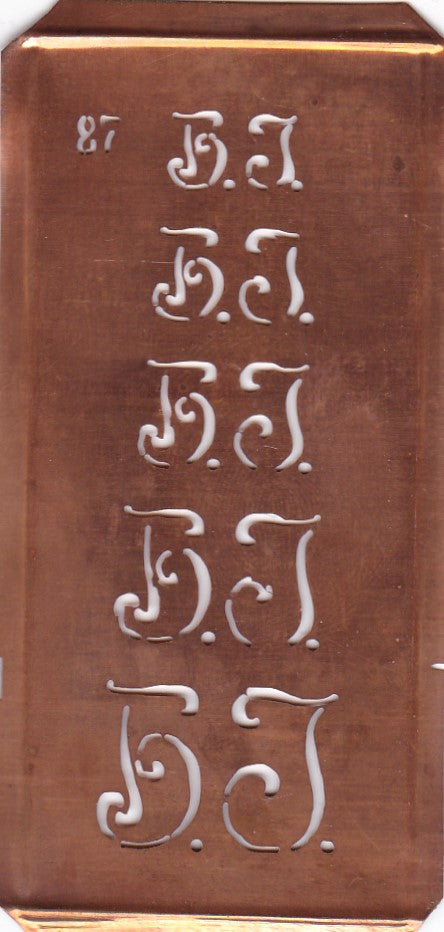 87 H. J.
H. J.
H. J.
H. J.
H. J.